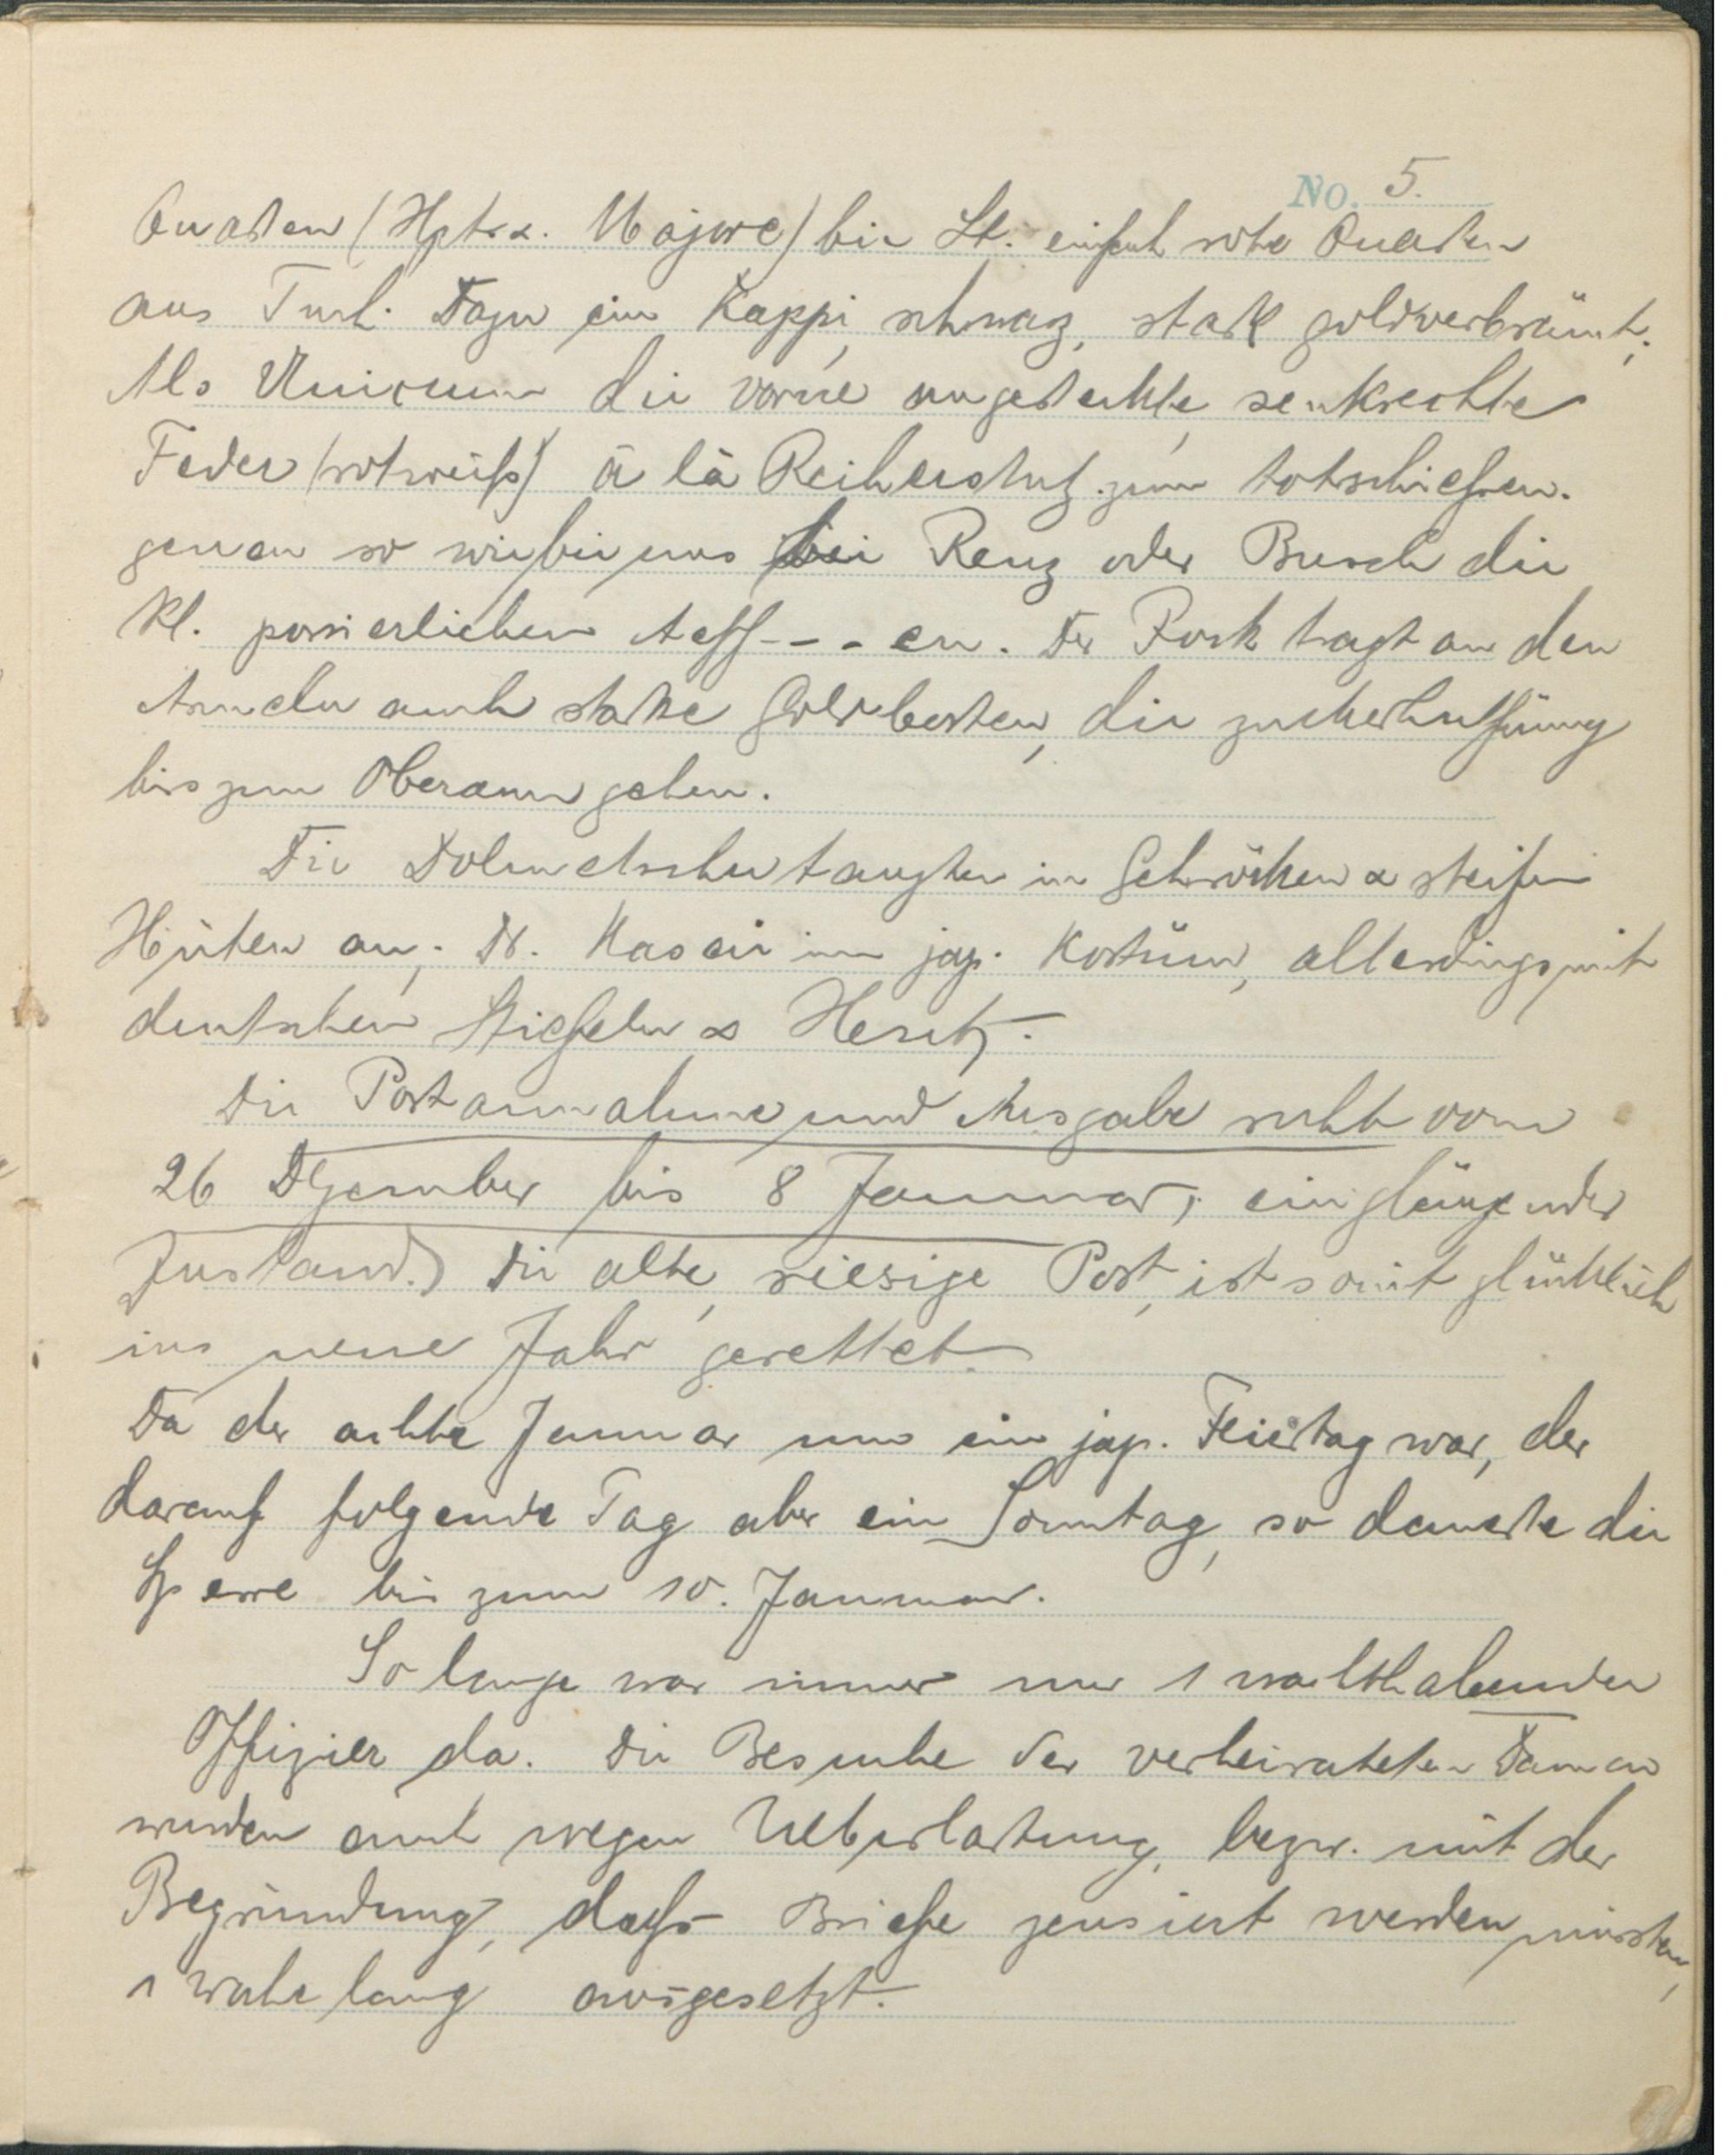 No. 5.
Quasten (Hptr. & Majore) bei Lt. einfach rote Quasten
aus Tuch. Dazu ein Kappi, schwarz, stark goldverbrämt.
Als Unicum die vorne angesteckte, senkrechte
Feder (rotweiß) à là Reiherstutz zum totschießen.
genau so wie bei uns bei Renz oder Busch die
kl. possierlichen Aeff - - - en. Der Rock tragt an den
Armeln auch starke Goldborten, die zuckerhutförmig
bis zum Oberarm gehen.
Die Dolmetscher tauchten in Gehröcken & steifen
Hüten an; Dr. Kasai im jap. Kostüm, allerdings mit
deutschen Stiefeln &
Die Postannahme und Ausgabe ruht vom
26 Dezember bis 8 Januar; ein glänzender
Zustand.) Die alte, riesige Post, ist somit glücklich
ins neue Jahr gerettet.
Da der achte Januar nun ein jap. Feiertag war, der
darauf folgende Tag aber ein Sonntag, so dauerte die
Sperre bis zum 10. Januar.
So lange war immer nur 1 wachthabender
Offizier da. Die Besuche der verheirateten Damen
wurden auch wegen Ueberlastung, bezw. mit der
Begründung, daß Briefe zensiert werden müssten,
1 Woche lang ausgesetzt.